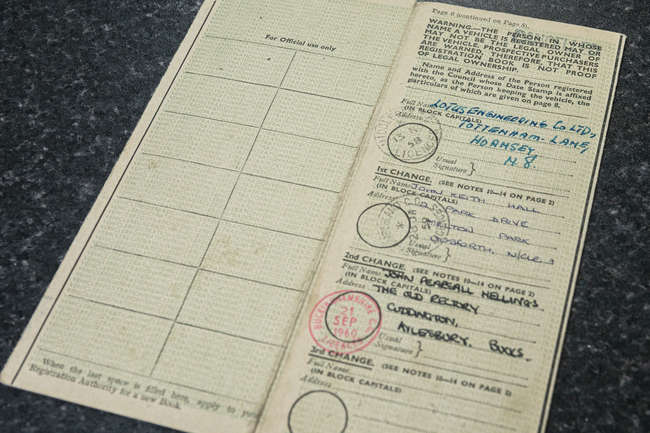 For Official use only
When the last space is filled here, apply to
Registration Authority for a new Book.
Page 6 (continued on Page 8).
WARNING—THE PERSON IN WHOSE
NAME A VEHICLE IS REGISTERED MAY OR
MAY NOT BE THE LEGAL OWNER OF
THE VEHICLE. PROSPECTIVE PURCHASERS
ARE WARNED, THEREFORE, THAT THIS
REGISTRATION BOOK IS NOT PROOF
OF LEGAL OWNERSHIP.
Name and Address of the Person registered
with the Council whose Date Stamp is affixed
hereto, as the Person keeping the vehicle, the
particulars of which are given on page 8.
Full Name LOTUS ENGINEERING CO LTD,
(IN BLOCK CAPITALS)
Address TOTTENHAM-LANE,
HORNSEY
N. 8.
Usual
Signature
1ST CHANGE. (SEE NOTES 10—14 ON PAGE 2)
Full Name JOHN KEITH HALL
(IN BLOCK CAPITALS)
Address PARK DRIVE
MELTON PARK
GOSFORTH,
Usual
Signature
2nd CHANGE. (SEE NOTES 10—14 ON PAGE 2)
Full Name JOHN PEARSALL HELLINGS.
(IN BLOCK CAPITALS)
Address THE OLD RECTORY
CUDDINGTON,
AYLESBURY, BUCKS.
21
SEP
1960
Usual
Signature
3rd CHANGE. (SEE NOTES 10—14 ON PAGE 2)
Full Name
(IN BLOCK CAPITALS)
Address